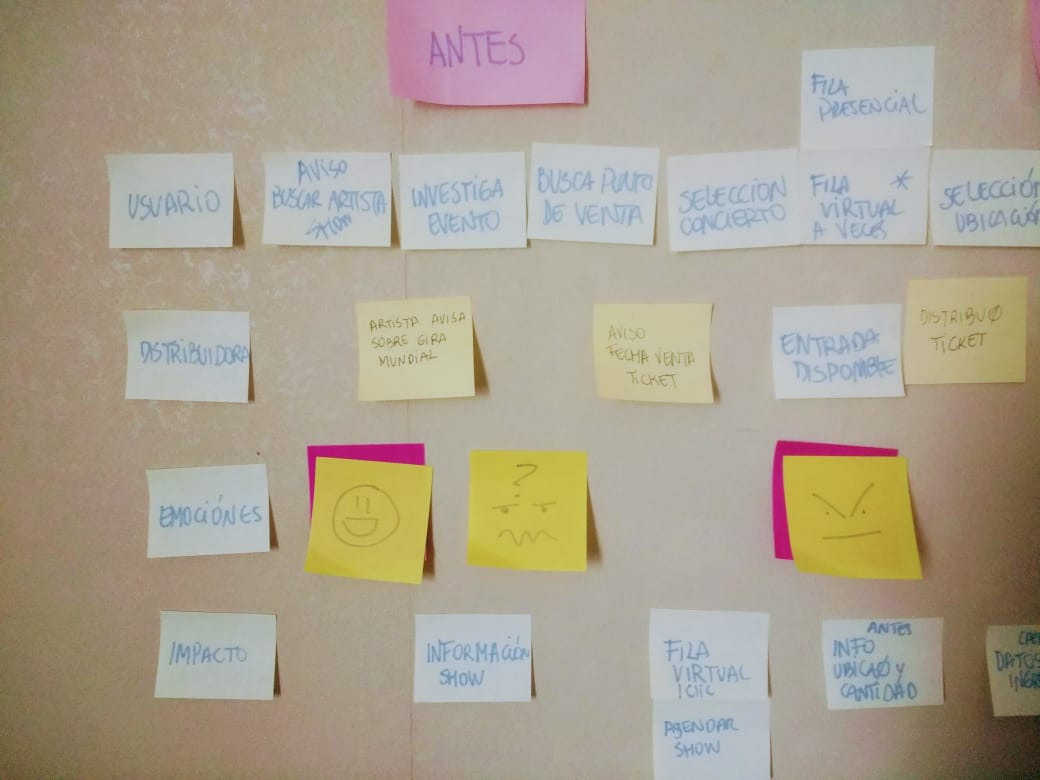 ANTES
FILA
PRESENCIAL
USUARIO
AVISO
BUSCAR ARTISTA
SHOW
INVESTIGA
EVENTO
BUSCA PUNTO
DE VENTA
SELECCION
CONCIERTO
FILA *
VIRTUAL
A VECES
SELECCIÓN
UBICACIÓN
DISTRIBUIDORA
ARTISTA AVISA
SOBRE GIRA
MUNDIAL
AVISO
FECHA VENTA
TICKET
ENTRADA
DISPONIBLE
DISTRIBUØ
TICKET
EMOCIÓNES
?
IMPACTO
INFORMACIÓN
SHOW
FILA
VIRTUAL
1 CLIC
AGENDAR
SHOW
ANTES
INFO
UBICAØ Y
CANTIDAD
DATOS